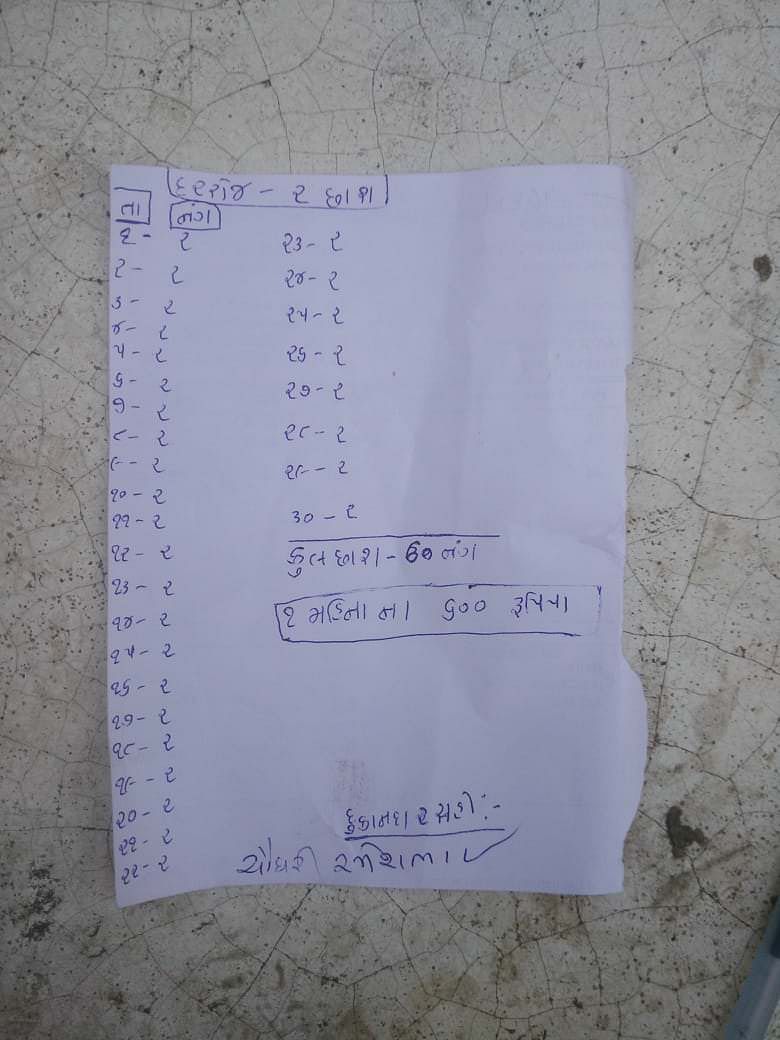 દરરોજ - ૨ છાશ
તા નંગ
૧ - ૨
૨ - ૨
૩ - ૨
૪ - ૨
૫ - ૨
૬ - ૨
૭ - ૨
૮ - ૨
૯ - ૨
૧૦ - ૨
૧૧ - ૨
૧૨ - ૨
૧૩ - ૨
૧૪ - ૨
૧૫ - ૨
૧૬ - ૨
૧૭ - ૨
૧૮ - ૨
૧૯ - ૨
૨૦ - ૨
૨૧ - ૨
૨૨ - ૨
૨૩ - ૨
૨૪ - ૨
૨૫ - ૨
૨૬ - ૨
૨૭ - ૨
૨૮ - ૨
૨૯ - ૨
૩૦ - ૨
કુલ છાશ - ૬૦ નંગ
૧ મહિના ના ૬૦૦ રૂપિયા
દુકાનદાર સહી :-
ચૌધરી રમેશભાઈ